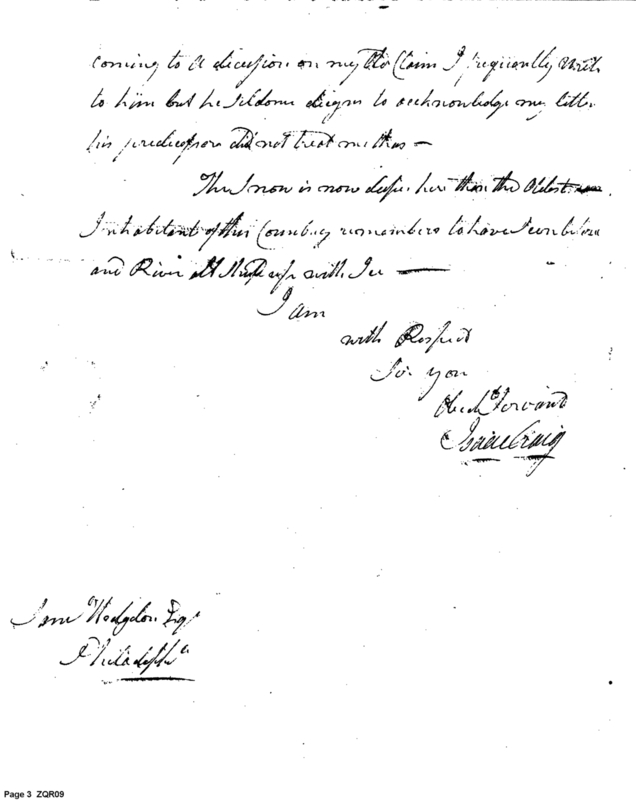 coming to a dicession on my Claim I frequently write
to him but he seldome diegns to acknowledge my letter
his predicessors did not treat me thus —
The Snow is now deeper here than the Oldest
Inhabitant of this Country remembers to have seen before
and River with Ice —
I am
with Respect
Sir your
Obed.t Servant
Isaac Craig
Sam.l Hodgdon Esq.r
Philadelph.a
Page 3 ZQR09